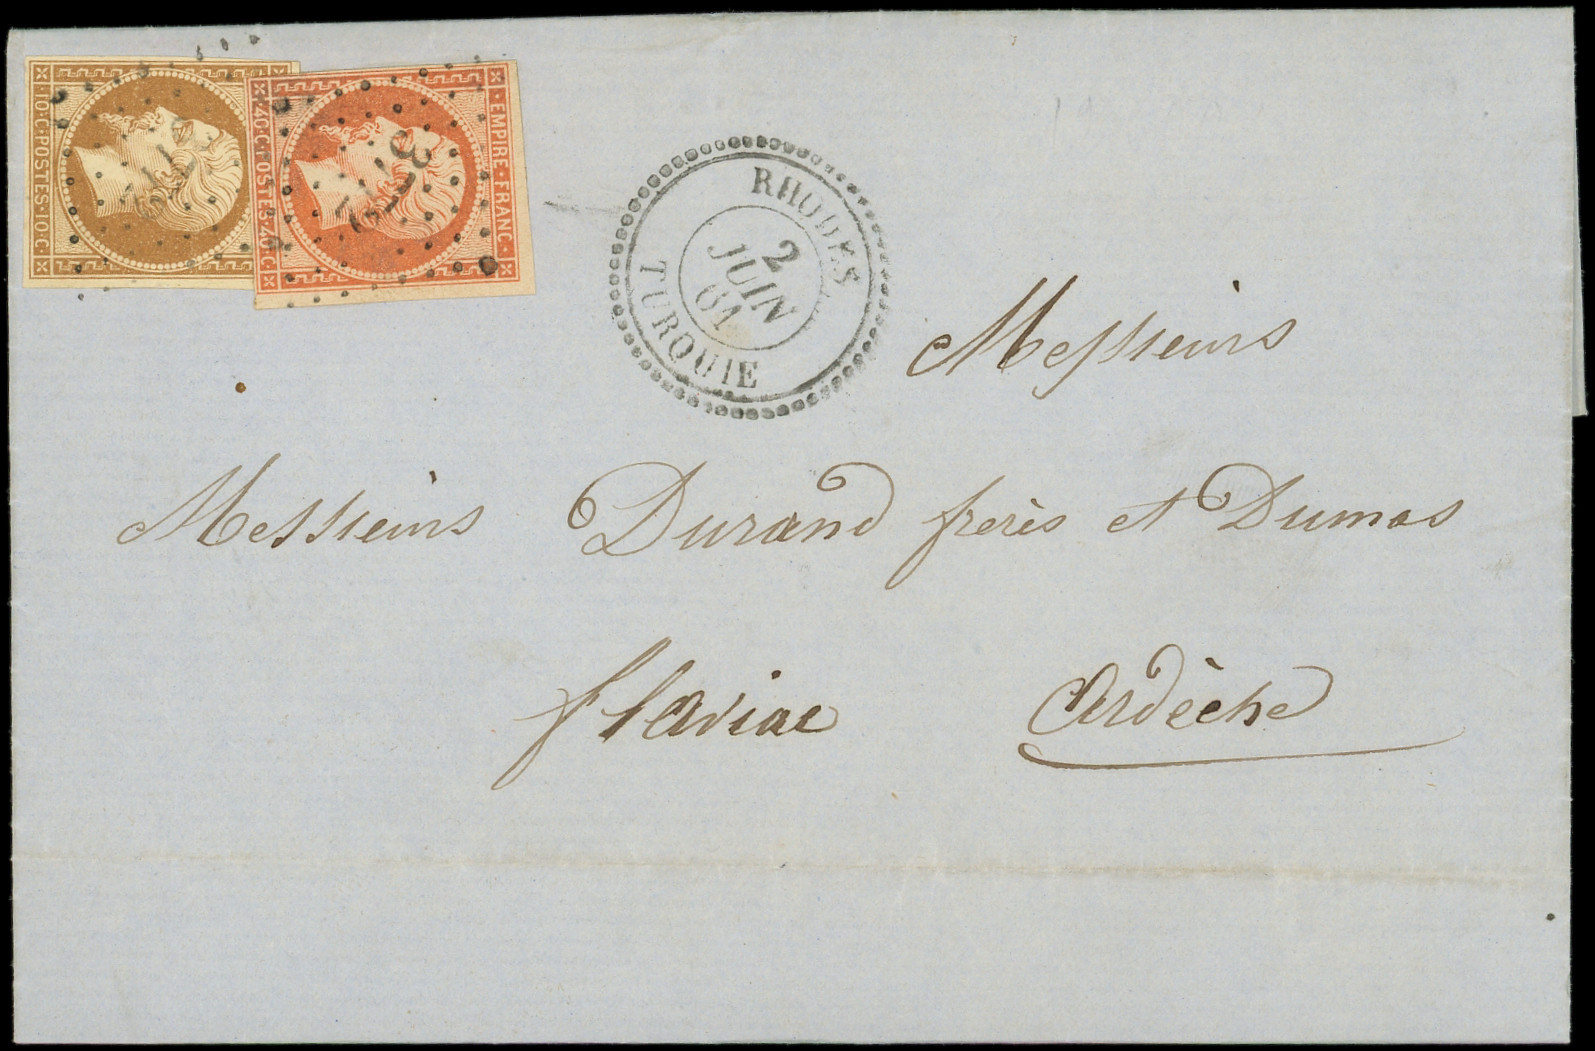 10·C·POSTES·10·C
40·C·POSTES·40·C
EMPIRE·FRANC·
3729
RHODES
2
JUIN
61
TURQUIE
Messieurs
Messieurs Durand frères et Dumas
flaviac Ardèche